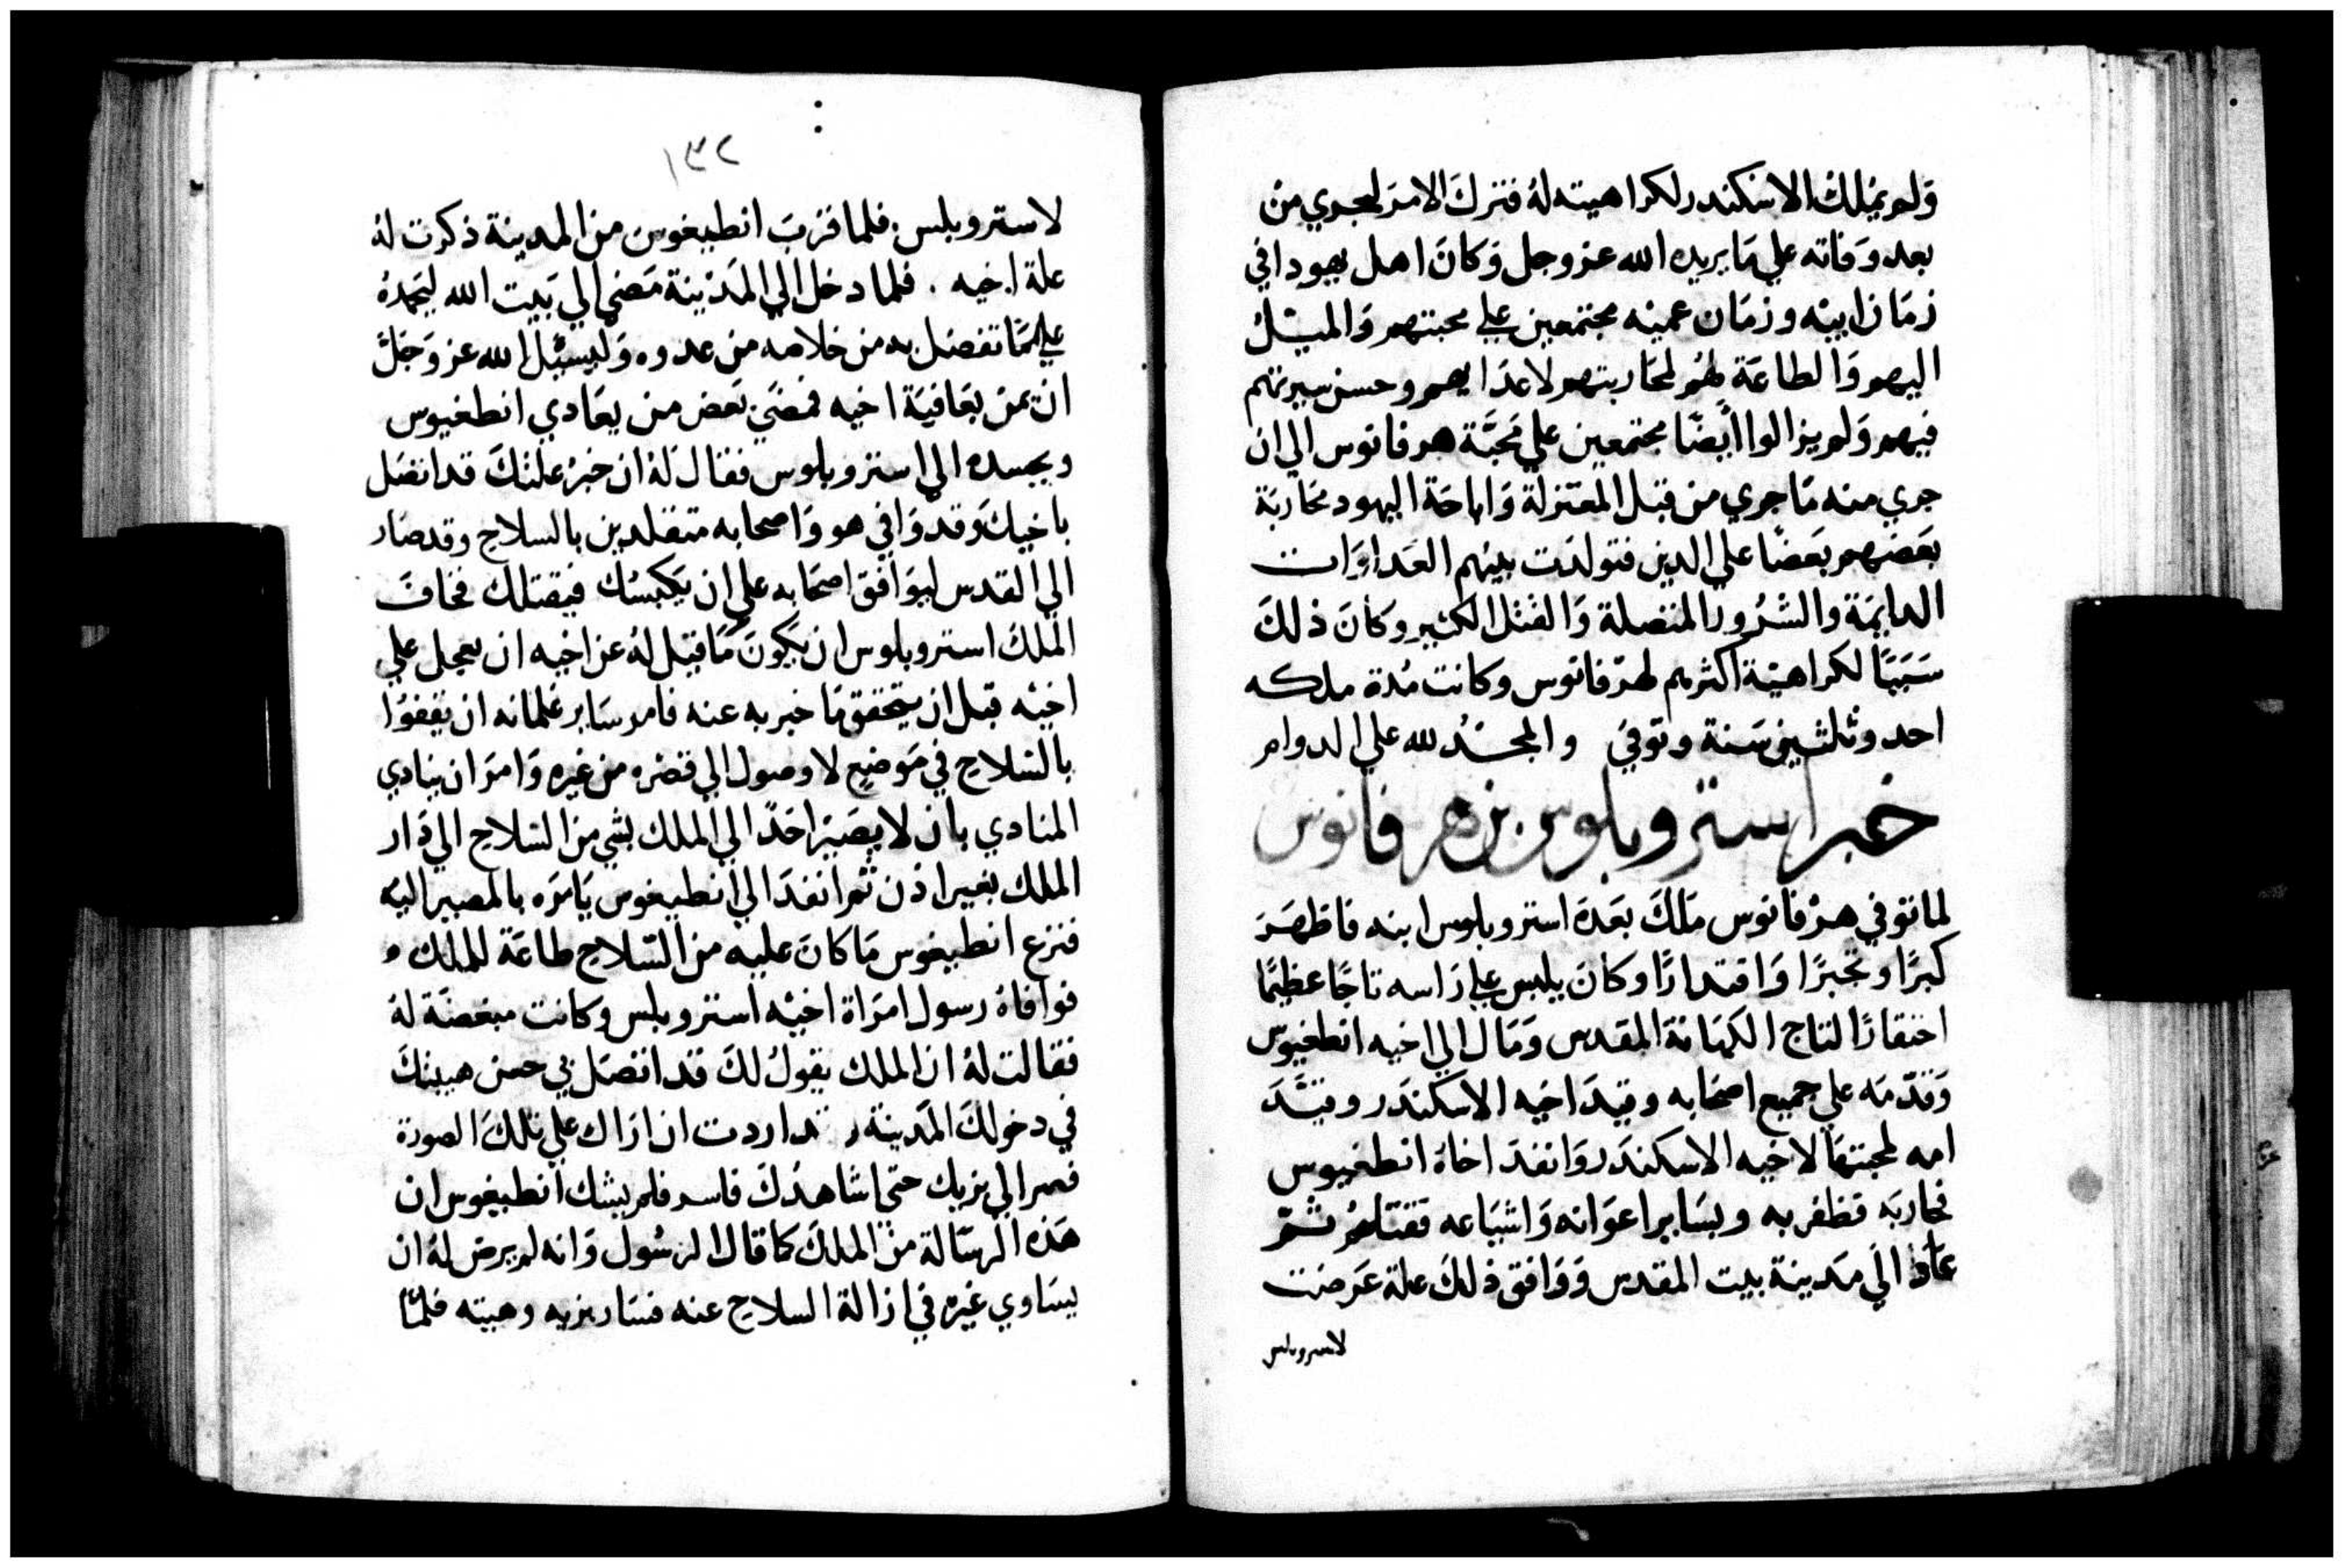 ولم يملك الاسكندر لكراهيته له فترك الامر ليجري من
بعد وفاته علي ما يريده الله عز وجل وكان اهل يهودا في
زمان ابيه وزمان عميه مجتمعين علي محبتهم والميل
اليهم والطاعة لهم لمحاربتهم لاعدايهم وحسن سيرتهم
فيهم ولم يزالوا ايضا مجتمعين علي محبة هرقانوس الي ان
جري منه ما جري من قبل المعتزلة واباحة اليهود محاربة
بعضهم بعضا علي الدين فتولدت بينهم العداوات
الدايمة والشرور المتصلة والقتل الكثير وكان ذلك
سببا لكراهية اكثرهم لهرقانوس وكانت مدة ملكه
احد وثلثين سنة وتوفي والمجد لله علي الدوام
خبر استروبلوس بن هرقانوس
لما توفي هرقانوس ملك بعده استروبلوس ابنه فاظهر
كبرا وتجبرا واقتدارا وكان يلبس علي راسه تاجا عظيما
احتقارا لتاج الكهانة المقدس ومال الي اخيه انطغيوس
وقدمه علي جميع اصحابه وقيد اخيه الاسكندر وقيد
امه لمحبتها لاخيه الاسكندر وانفذ اخاه انطغيوس
فحاربه فظفر به وبساير اعوانه واشياعه فقتلهم ثم
عاد الي مدينة بيت المقدس ووافق ذلك علة عرضت
لاستروبلس
١٣٢
لاستروبلس فلما قرب انطيغوس من المدينة ذكرت له
علة اخيه . فلما دخل الي المدينة مضي الي بيت الله ليحمده
علي ما تفضل به من خلاصه من عدوه وليسئل الله عز وجل
ان يمن بعافية اخيه فمضي بعض من يعادي انطغيوس
ويحسده الي استروبلوس فقال له ان خبر علتك قد اتصل
باخيك وقد وافي هو واصحابه متقلدين بالسلاح وقد صار
الي القدس ليوافق اصحابه علي ان يكبسك فيقتلك فخاف
الملك استروبلوس ان يكون ما قيل له عن اخيه ان يعجل علي
اخيه قبل ان يتحقق ما خبر به عنه فامر ساير غلمانه ان يقفوا
بالسلاح في موضع لا وصول الي قصره من غيره وامر ان ينادي
المنادي بان لا يصير احد الي الملك بشي من السلاح الي دار
الملك بغير اذن ثم انفذ الي انطيغوس يامره بالمصير اليه
فنزع انطيغوس ما كان عليه من السلاح طاعة للملك
فوافاه رسول امراة اخيه استروبلس وكانت مبغضة له
فقالت له ان الملك يقول لك قد اتصل بي حسن هييتك
في دخولك المدينة اردت ان اراك علي تلك الصورة
فصر الي بزيك حتي اشاهدك فاسر فلم يشك انطيغوس ان
هذه الرسالة من الملك كما قال الرسول وانه لم يرض له ان
يساوي غيره في ازالة السلاح عنه فسار بزيه وهيته فلما